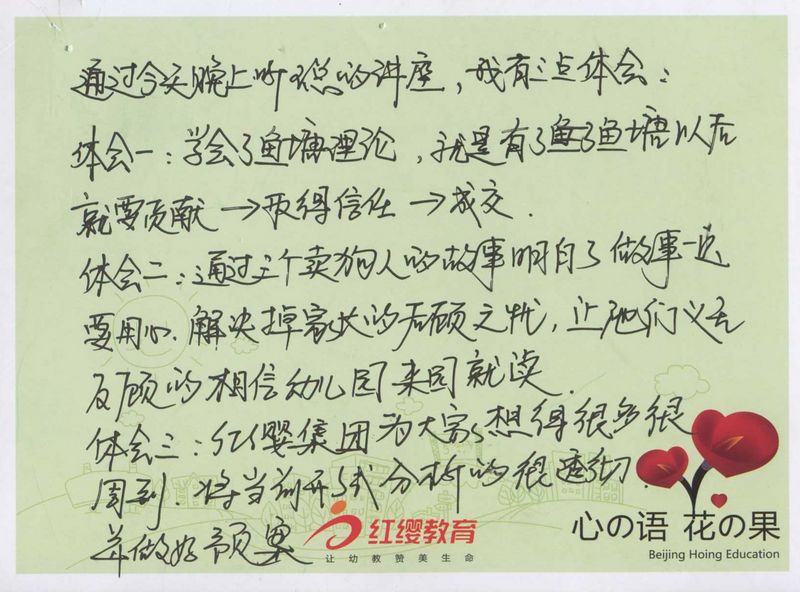 通过今天晚上听总的讲座，我有三点体会：
体会一：学会了鱼塘理论，就是有了鱼塘以后
就要贡献→取得信任→成交．
体会二：通过三个卖狗人的故事明白了做事一定
要用心．解决掉家长的后顾之忧，让他们义无
反顾的相信幼儿园来园就读．
体会三：红缨集团为大家想得很多很
周到．将当前形式分析的很透彻．
并做好预案
红缨教育
让幼教赞美生命
心の语 花の果
Beijing Hoing Education